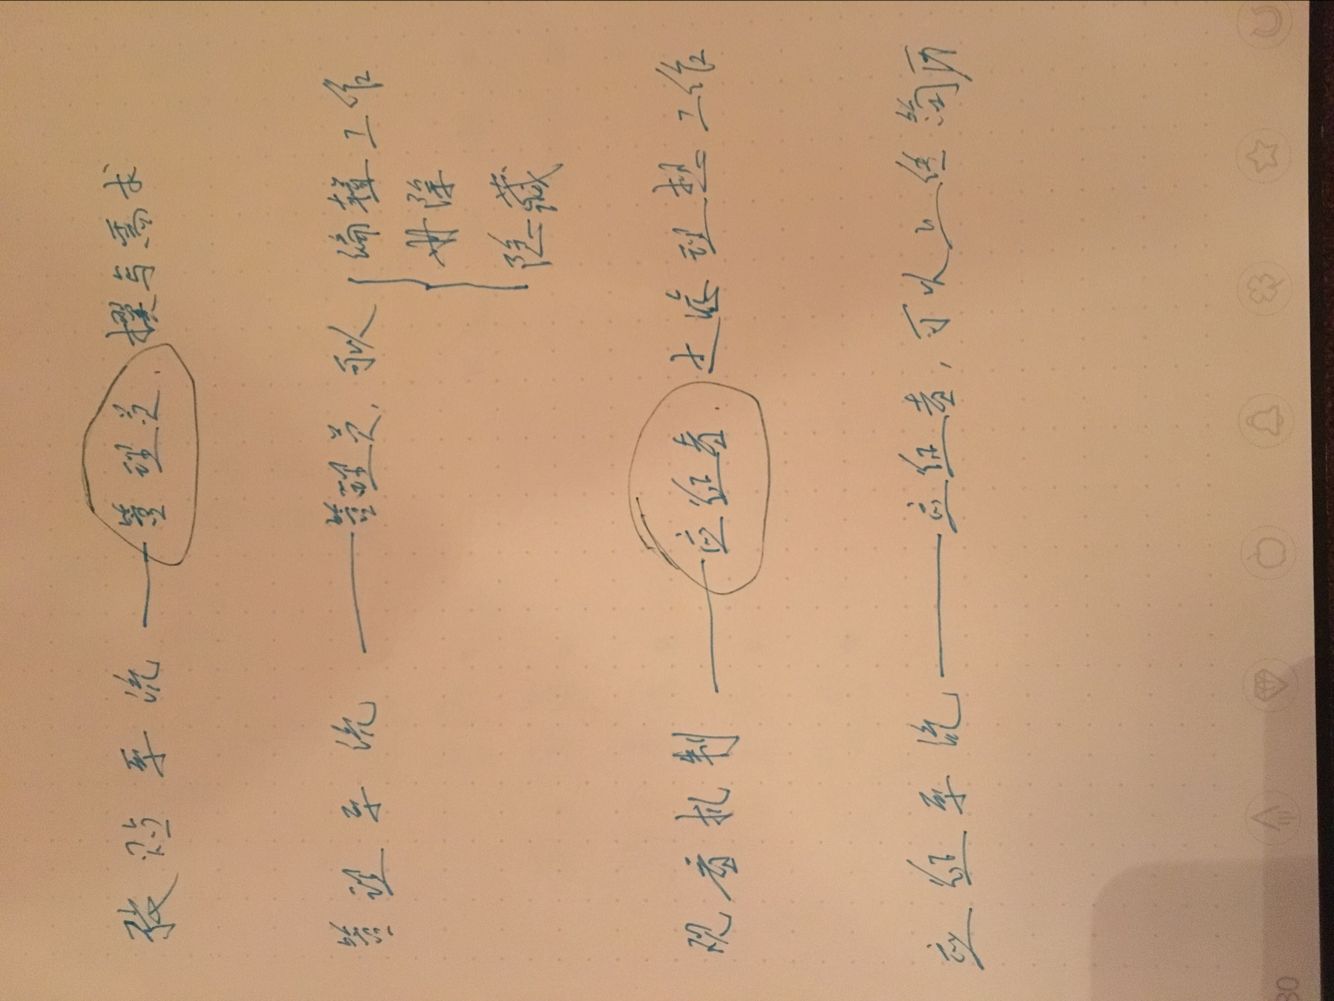 张贴系统——管理员.撰写需求
管理系统——管理员.可以 编辑工作
删除
隐藏
观看机制——应征者.过滤理想工作
应征系统——应征者,可以上传简历
80